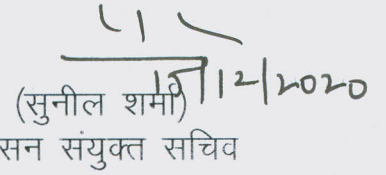 12/2020
(सुनील शर्मा)
सन संयुक्त सचिव